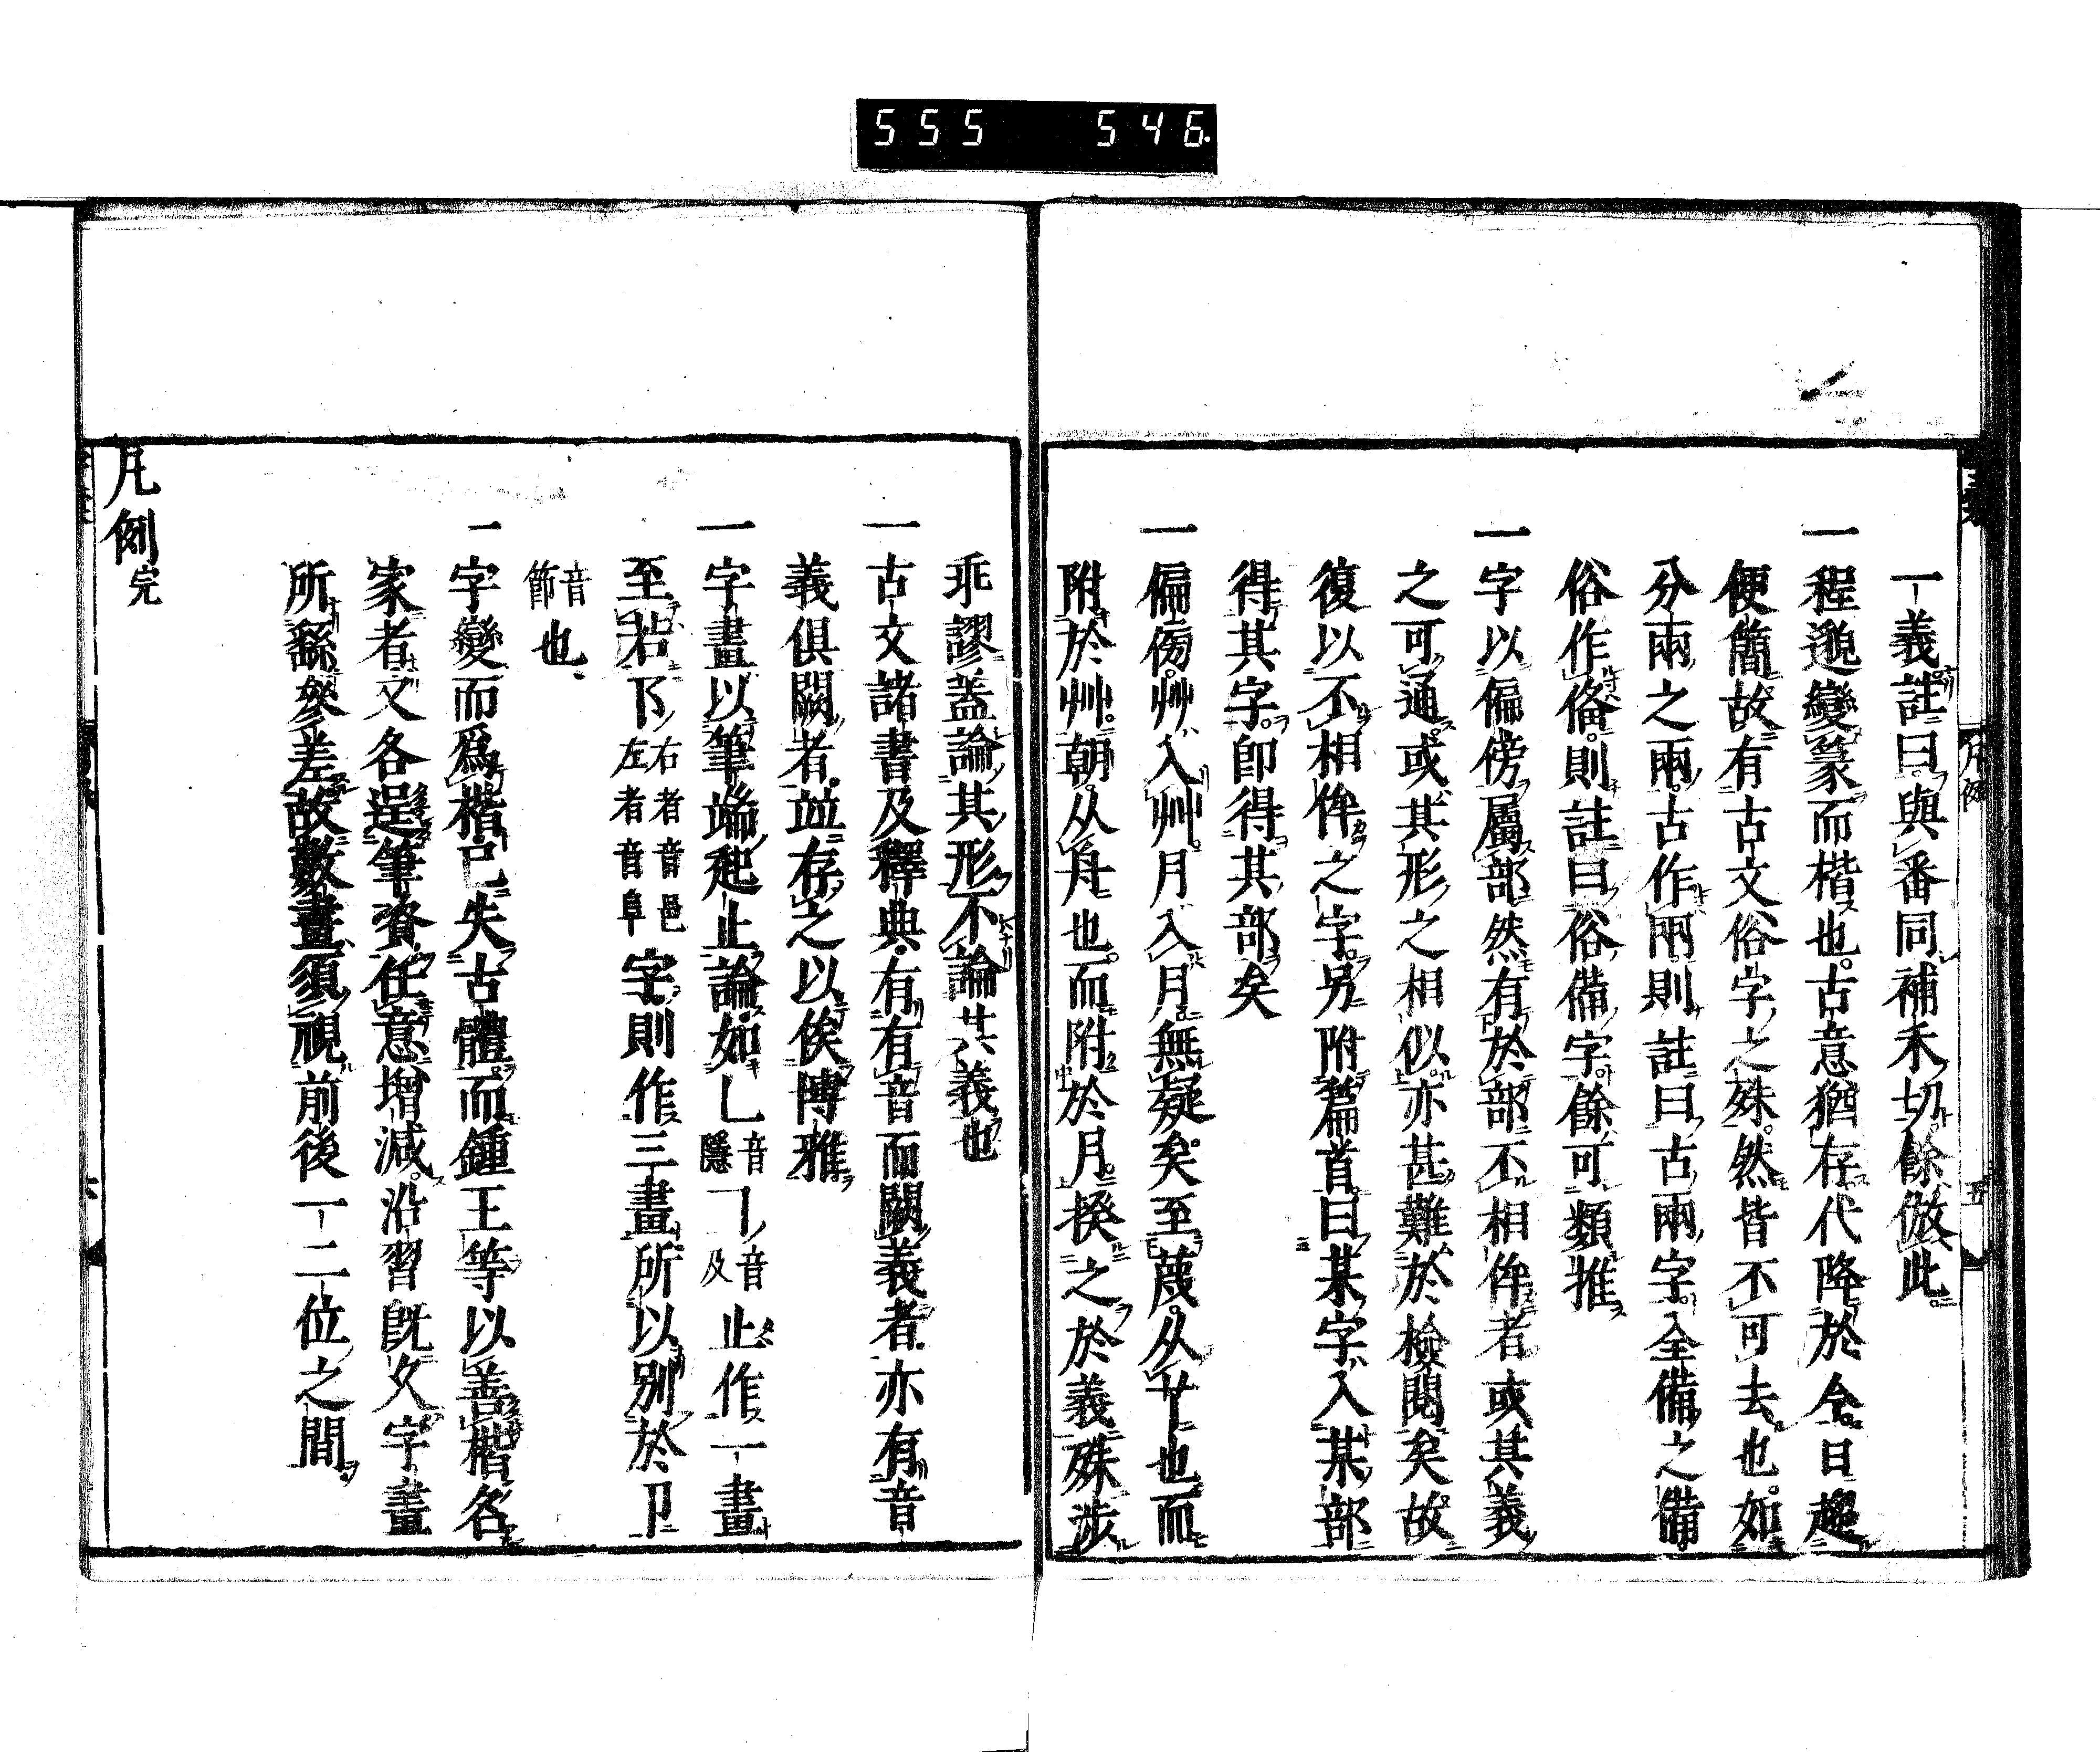 555 546.
一義註曰與番同補禾切餘倣此
一程邈變篆而楷也古意猶存代降於今日趨
便簡故有古文俗字之殊然皆不可去也如
分兩之兩古作㒳則註曰古兩字全備之備
俗作俻則註曰俗備字餘可類推
一字以偏傍屬部然有於部不相侔者或其義
之可通或其形之相似亦甚難於檢閱矣故
復以不相侔之字另附篇首曰某字入某部
得其字卽得其部矣
一偏傍艸入艸月入月無疑矣至蔑从𦫳也而
附於艸朝从舟也而附於月揆之於義殊涉
乖謬盖論其形不論其義也
一古文諸書及釋典有有音而闕義者亦有音
義俱闕者竝存之以俟博雅
一字畫以筆端起止論如乚音隱㇕音及止作一畫
至若阝右者音邑左者音阜字則作三畫所以別於卩
音節也
一字變而爲楷已失古體而鍾王等以善楷名
家者又各逞筆資任意增減沿習旣久字畫
所繇參差故數畫須視前後一二位之間
凡例完